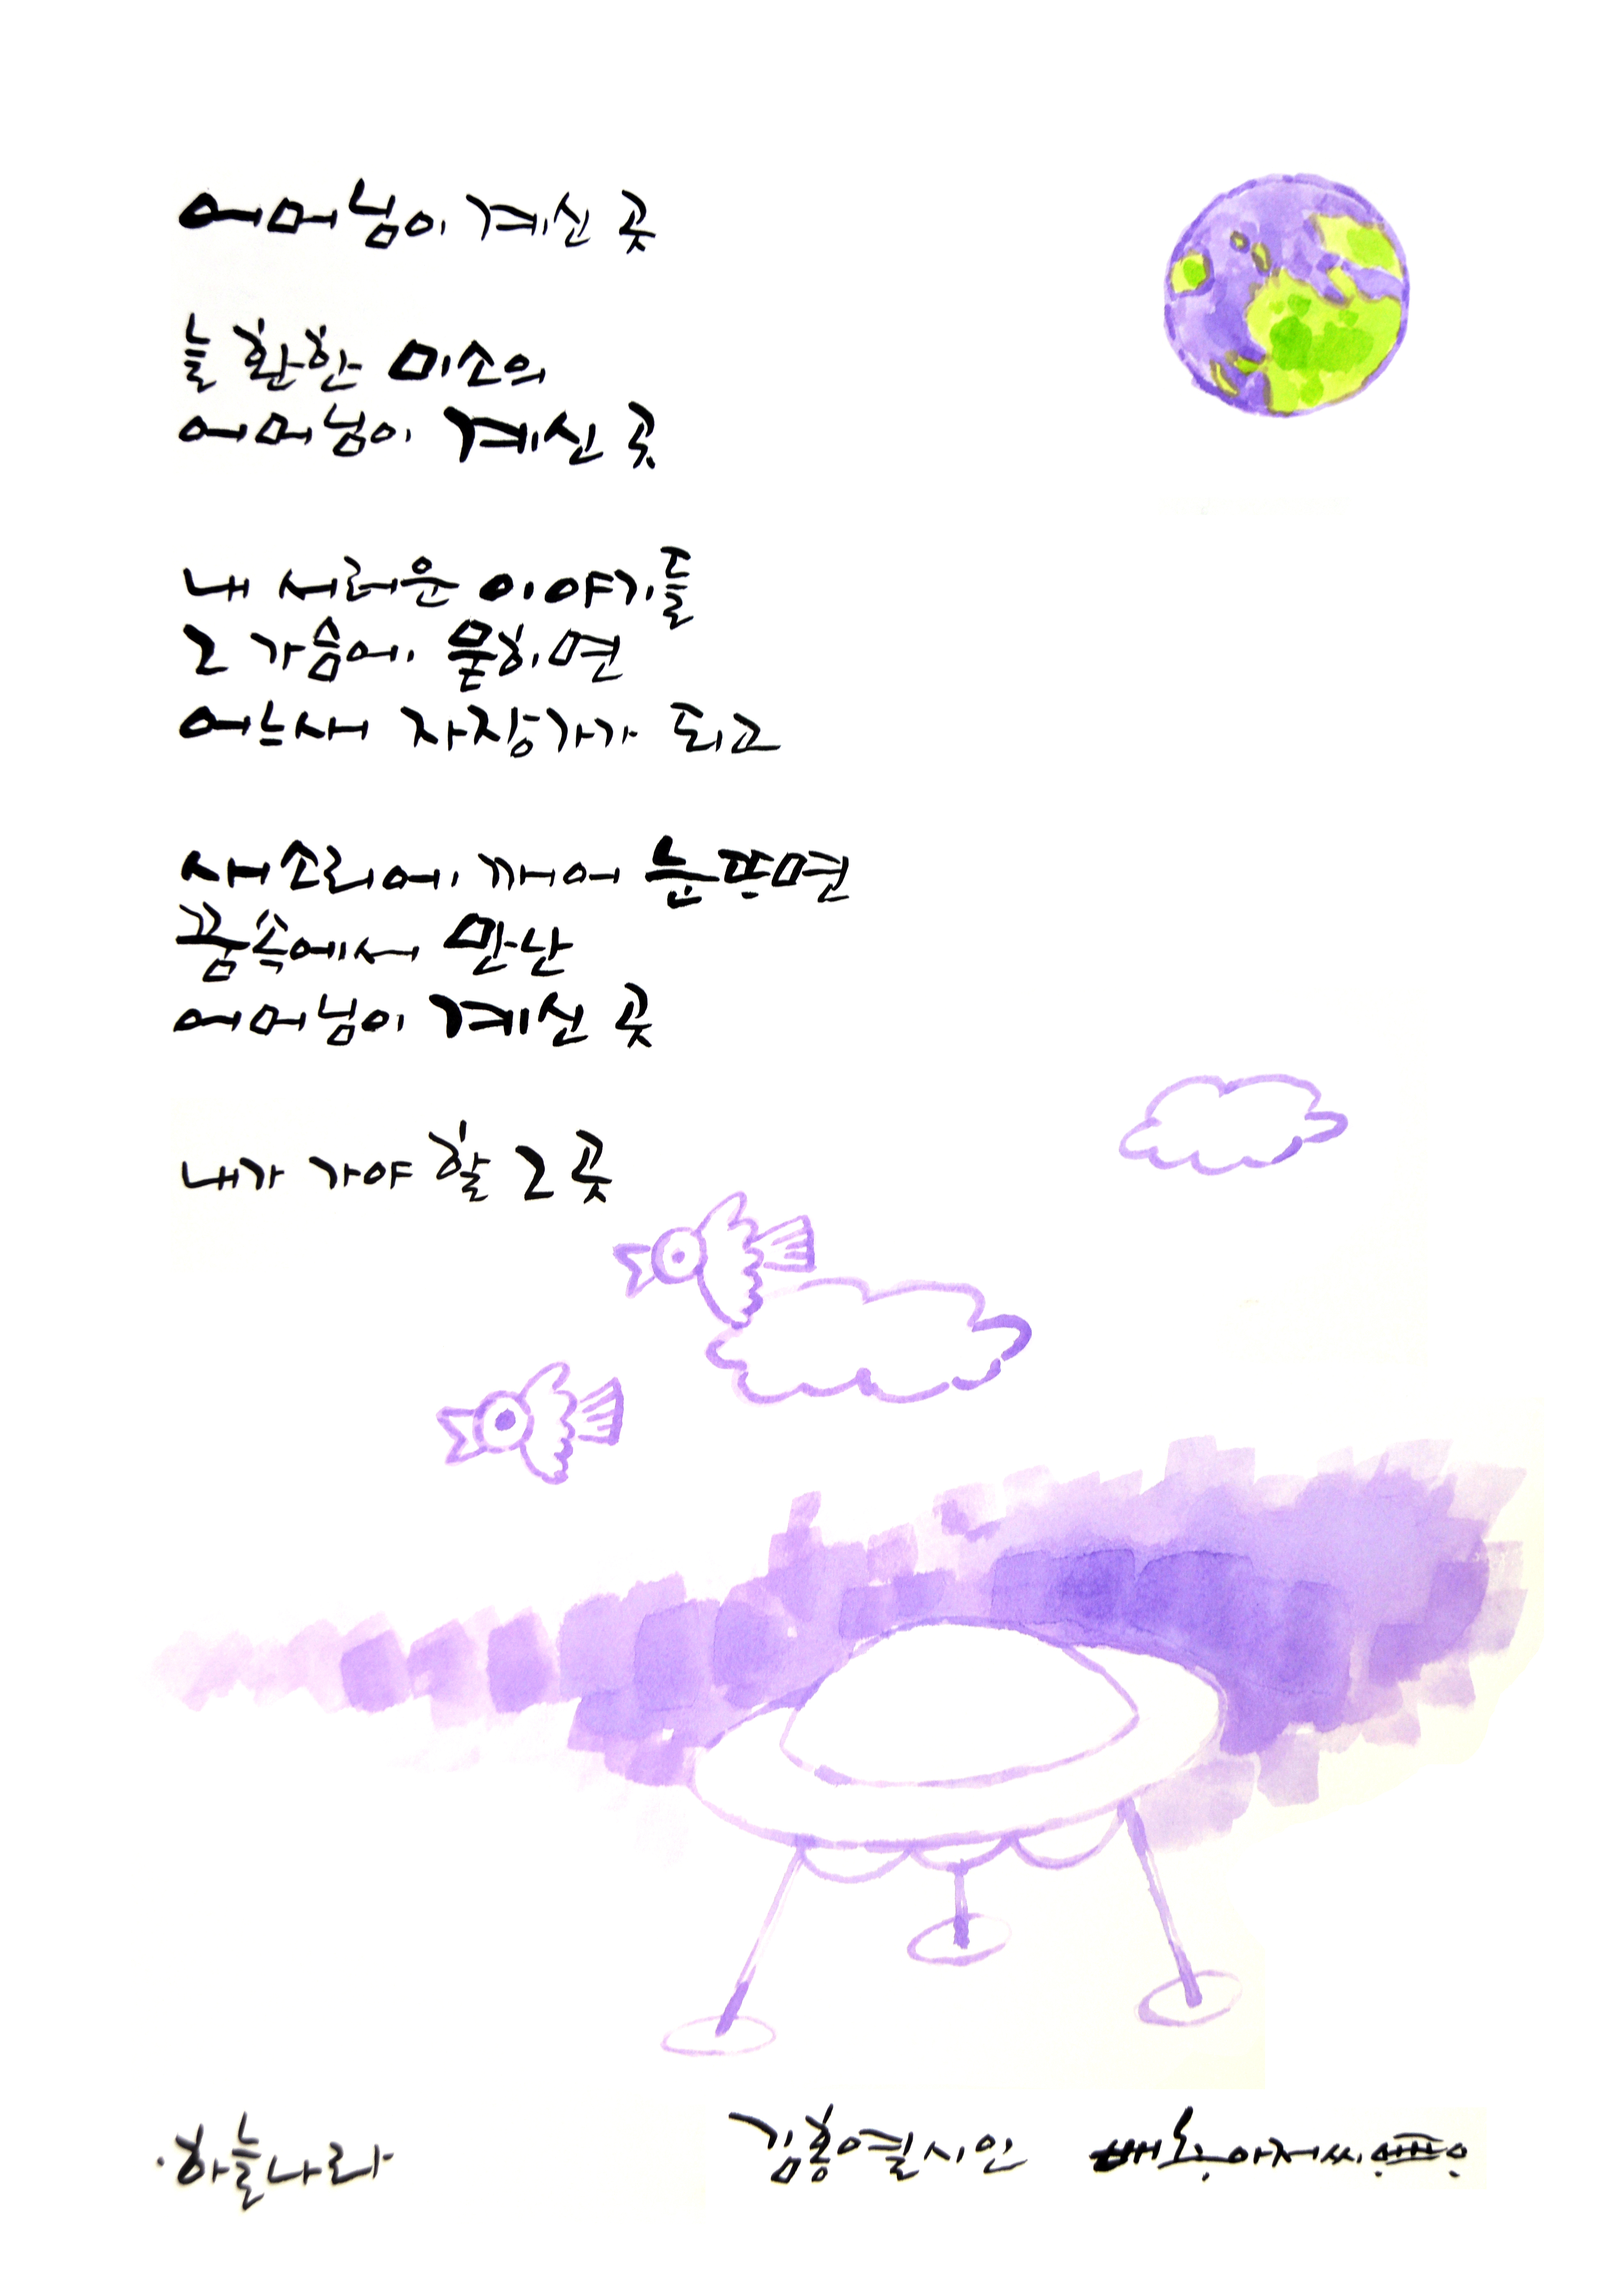 어머님이 계신 곳
늘 환한 미소의
어머님이 계신 곳
내 서러운 이야기들
그 가슴에 묻히면
어느새 자장가가 되고
새소리에 깨어 눈뜨면
꿈속에서 만난
어머님이 계신 곳
내가 가야 할 그 곳
·하늘나라
김홍열시인 아저씨